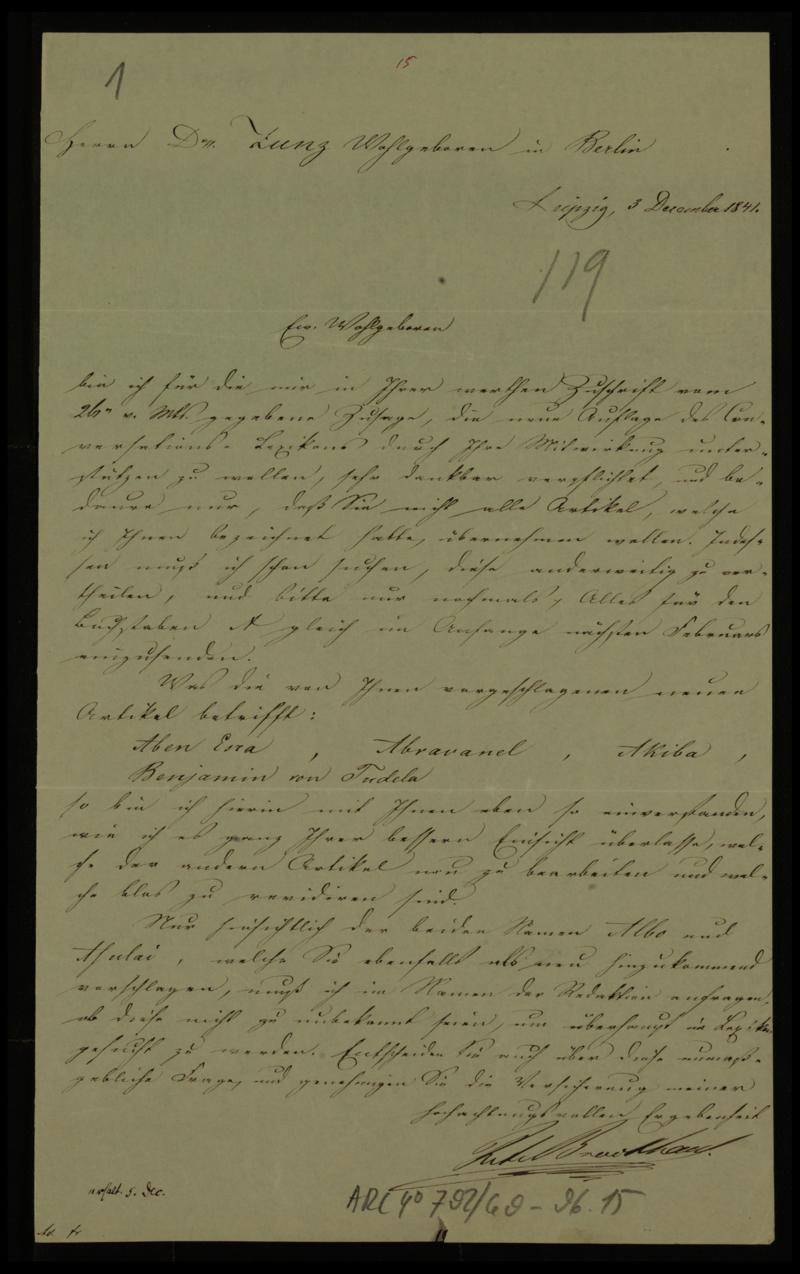 15
1
Herrn Dr. Zunz Wohlgeboren in Berlin
Leipzig, 3 December 1841.
119
Ew. Wohlgeboren
bin ich für die mir in Ihrer werthen Zuschrift vom
26n v. Mts. gegebene Zusage, die neue Auflage des Con-
versations-Lexikons durch Ihre Mitwirkung unter-
stützen zu wollen, sehr dankbar verpflichtet, und be-
daure nur, daß Sie nicht alle Artikel, welche
ich Ihnen bezeichnet hatte, übernehmen wollen. Indes-
sen muß ich schon suchen, diese anderweitig zu ver-
theilen, und bitte nur nochmals, Alles für den
Buchstaben A gleich im Anfange nächsten Februars
einzusenden.
Was die von Ihnen vorgeschlagenen neuen
Artikel betrifft:
Aben Esra, Abravanel, Akiba,
Benjamin von Tudela
so bin ich hierin mit Ihnen eben so einverstanden,
wie ich es ganz Ihrer bessern Einsicht überlasse, wel-
che der andern Artikel neu zu bearbeiten und wel-
che blos zu revidiren sind.
Nur hinsichtlich der beiden Namen Albo und
Asulai, welche Sie ebenfalls als neu hinzukommend
vorschlagen, muß ich im Namen der Redaktion anfragen,
ob diese nicht zu unbekannt seien, um überhaupt im Lexikon
gesucht zu werden. Entscheiden Sie auch über diese unmaß-
gebliche Frage, und genehmigen Sie die Versicherung meiner
hochachtungsvollen Ergebenheit
Brockhaus.
erhalt. 5. Dec.
ARC 4o 792/
15